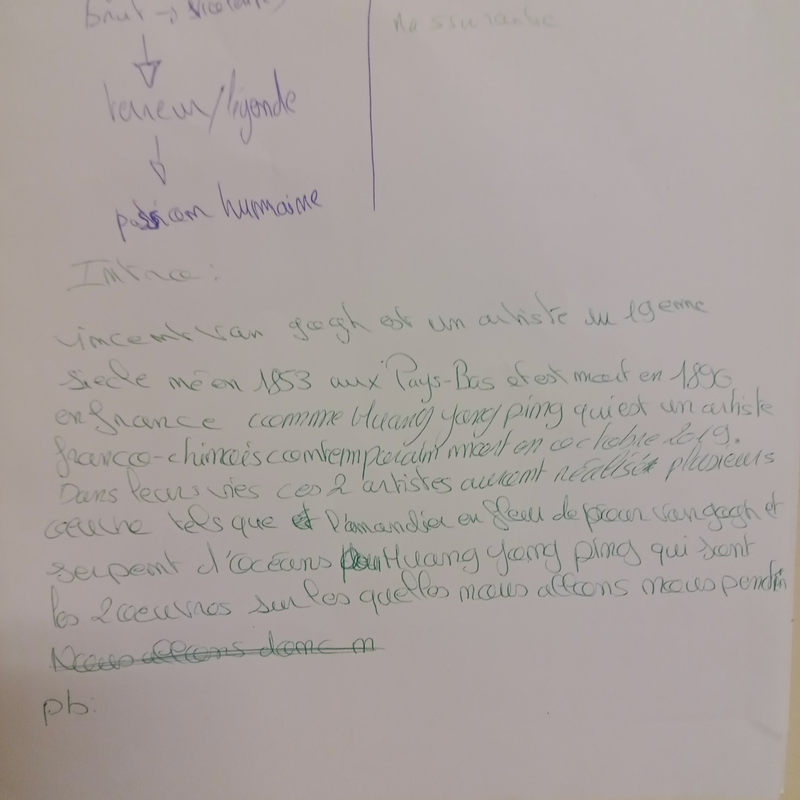 brut →
rassurante
terreur/légende
passion humaine
Intro :
vincent van gogh est un artiste du 19eme
siecle né en 1853 aux Pays-Bas et est mort en 1890
en france comme Huang yong ping qui est un artiste
franço-chinois contemporain mort en octobre 2019.
Dans leurs vies ces 2 artistes auront réalisé plusieurs
oeuvre tels que l'amandier en fleur de pour van gogh et
serpent d'océans pour Huang yong ping qui sont
les 2 oeuvres sur les quelles nous allons nous
Nous allons donc n
pb: